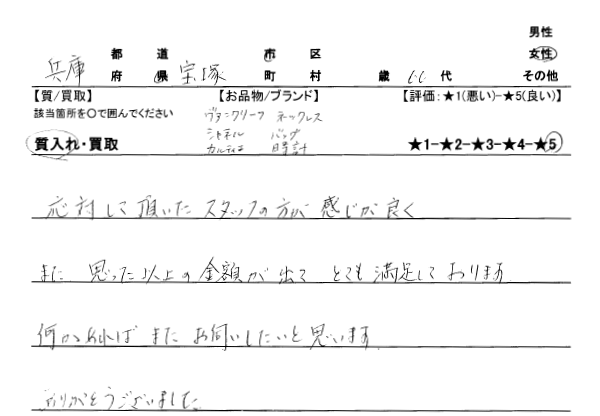 男性
都 道 市 区 女性
兵庫 府 県 宝塚 町 村 歳 代 その他
【質/買取】 【お品物/ブランド】 【評価：★1(悪い)-★5(良い)】
該当箇所を〇で囲んでください ヴァンクリーフ ネックレス
シャネル バッグ
質入れ・買取 カルティエ 時計 ★1-★2-★3-★4-★5
応対して頂いたスタッフの方が感じが良く
また 思った以上の金額が出て とても満足しております
何かあれば また お伺いしたいと思います
ありがとうございました